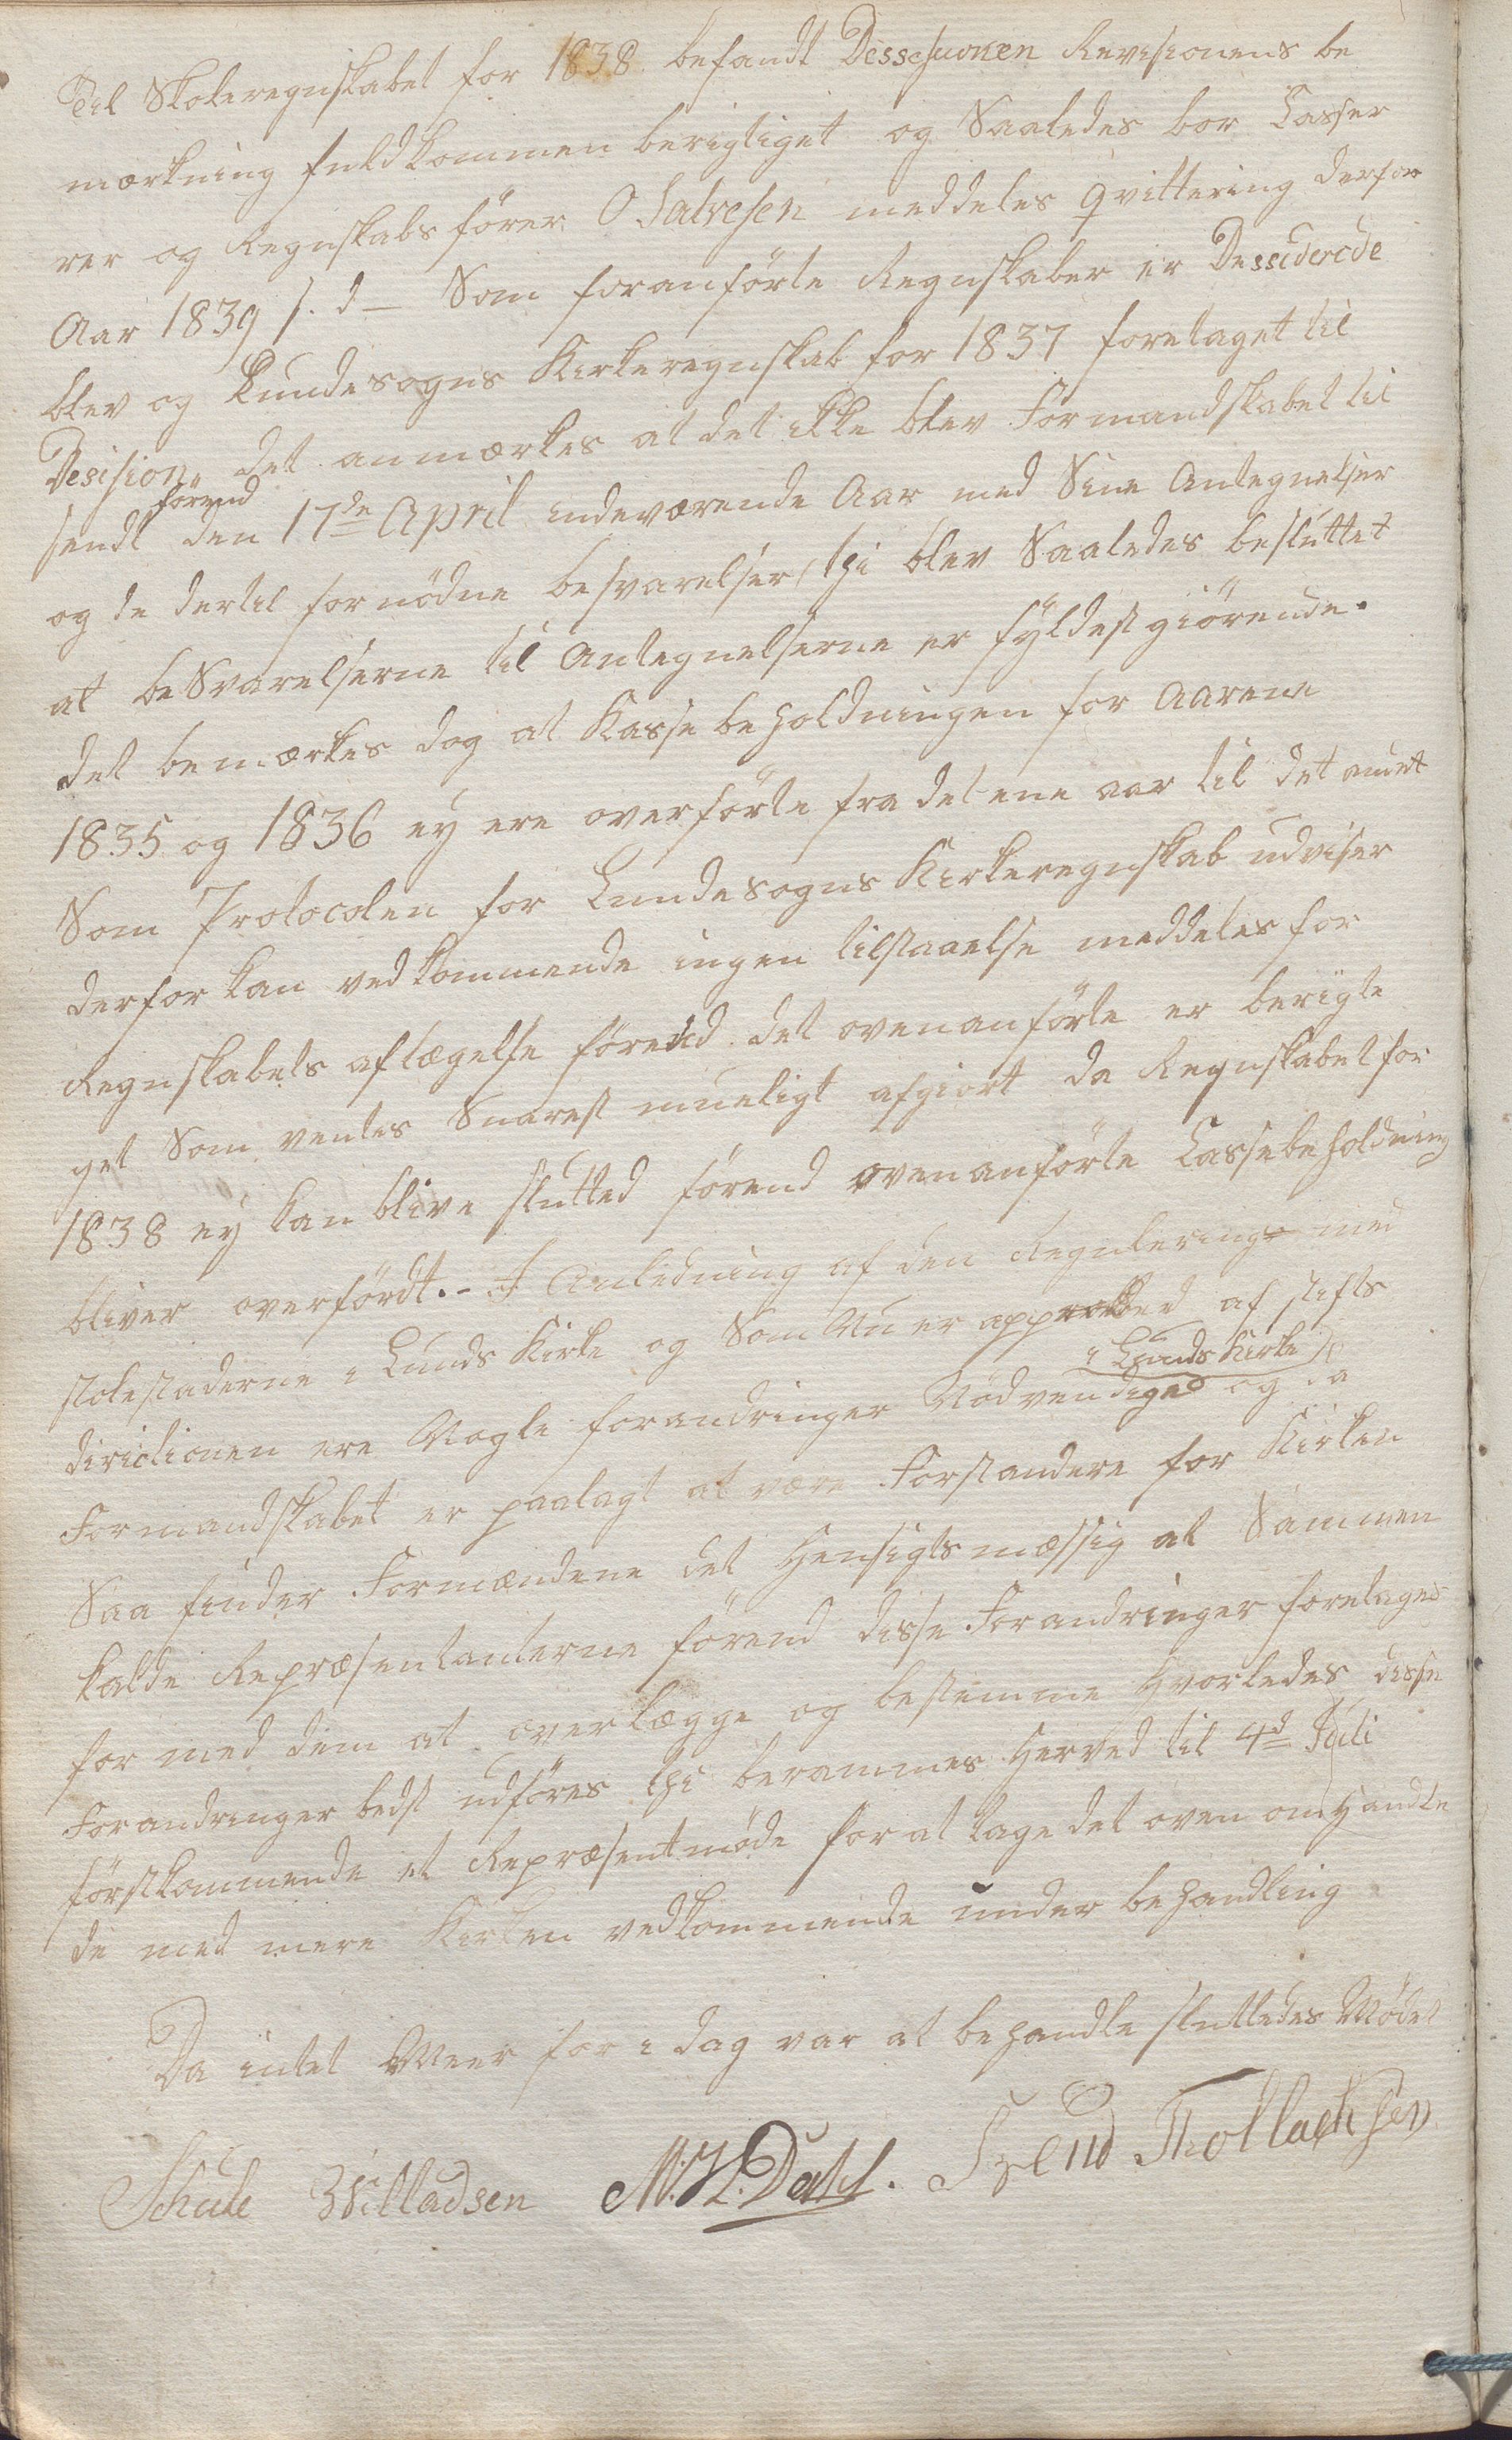 Til Skoleregnskabet for 1838 befandt Dessesuonen Revisionens be
mærkning fuldkommen berigtiget og Saaledes bør Casser
rer og Regnskabsfører O Salvesen meddeles qvittering derfor
Aar 1839 s. d – Som foranførte Regnskaber er Dessiderede
blev og Lundesogns Kirkeregnskab for 1837 foretaget til
Desision, det anmærkes at det ikke blev Formandskabet til
sendt førend den 17de April indeværende Aar med Sine Antegnelser
og de dertil fornødne besvarelser, thi blev Saaledes besluttet
at beSvarelserne til Antegnelserne er fyldestgiørende.
det bemærkes dog at Kassebeholdningen for Aarene
1835 og 1836 ey ere overførte fra det ene aar til det andet
Som Protocolen for Lundesogns Kirkeregnskab udviser
derfor kan vedkommende ingen tilstaaelse meddeles for
Regnskabets aflægelse førend det ovenanførte er berigte
get Som ventes Snarest mueligt afgiort da Regnskabet for
1838 ey kan blive sluttet førend ovenanførte Cassebeholdning
bliver overfördt. – I Anledning af den Regulering med
stolestaderne i Lunds Kirke og Som Nu er approbed af stifts
dirictionen ere Nogle forandringer i Lunds Kirke Nödvendiged og da
Formandskabet er paalagt at være Forstandere for Kirken
Saa finder Formændene det Hensigtsmæssig at Sammen
kalde Repræsentanterne förend disse Forandringer foretages
for med dem at overlægge og bestemme Hvorledes disse
Forandringer bedst udföres thi berammes Herved til 4d Juli
förstkommende et Repræsentmöde for at tage det oven omhandle
de med mere Kirken vedkommende under behandling
Da intet Meer for i dag var at behandle sluttedes Mödet
Schule Villadsen M. H. Dahl. Svend Thollachsen